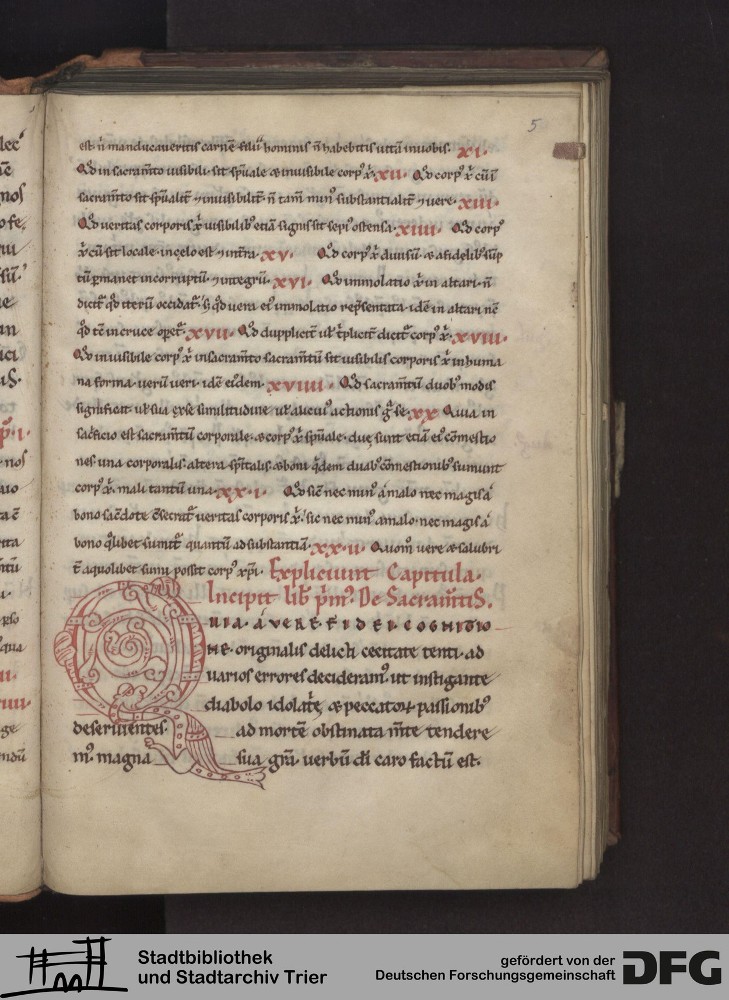 5
est n̄ manducaveritis carnē filii hominis n̄ habebitis vitā in vobis. XI.
Qd̄ in sacram̄to visibili sit sp̄uale & invisibile corp' x̄p̄i. XII. Qd̄ corp' x̄ cū ī
sacram̄to sit sp̄ualit̄ & invisibilit̄ n̄ tam̄ min' substantialit̄ & vere. XIII.
Qd̄ veritas corporis x̄ visibilib' etiā signis sit sepi' ostensa. XIIII. Qd̄ corp'
x̄ cū sit locale in celo est & in t̄ra. XV. Qd̄ corp' x̄ divisū & a fidelib' sūp
tū p̄manet incorruptū & integrū. XVI. Qd̄ immolatio x̄ in altari n̄
dicit̄ qd̄ iterū occidat̄ s; qd̄ vera ei' immolatio rep̄sentata idē in altari nē
qd̄ tē in cruce opet̄. XVII. Qd̄ dupplicit̄ vl' t̄plicit̄ dicit̄ corp' x̄. XVIII.
Qd̄ invisibile corp' x̄ in sacram̄to sacram̄tū sit visibilis corporis x̄ in huma
na forma. verū veri. idē ei'dem. XVIIII. Qd̄ sacram̄tū duob' modis
significat vl' sua ex se similitudine vl' alicui' actionis gr̄ se. XX Quia in
sac̄ficio est sacram̄tū corporale. & corp' x̄ sp̄uale. duę sunt etiā ei' comestio
nes. una corporalis. altera sp̄italis. & boni q̄dem duab' comestionib' sumunt
corp' x̄. mali tantū una. XX.I. Qd̄ sic̄ nec min' a malo nec magis a
bono sac̄dote c̄secrat̄ veritas corporis x̄. sic nec min' a malo. nec magis a
bono q̄libet sumit̄ quantū ad substantiā. XX.II. Quom̄ vere & salubri
t̄ a quolibet sumi possit corp' xp̄i. Expliciunt Capitula.
Incipit lib̄ p̄m'. De Sacram̄tis.
QUIA. A VERE FIDEI COGNITIO
NE. originalis delicti cecitate tenti. ad
varios errores decideram'. ut instigante
diabolo idolat̄ę & peccatoꝝ passionib'
deservientes. ad mortē obstinata m̄te tendere
m'. magna sua gr̄a. verbū dī caro factū est.
Stadtbibliothek
und Stadtarchiv Trier
gefördert von der
Deutschen Forschungsgemeinschaft
DFG